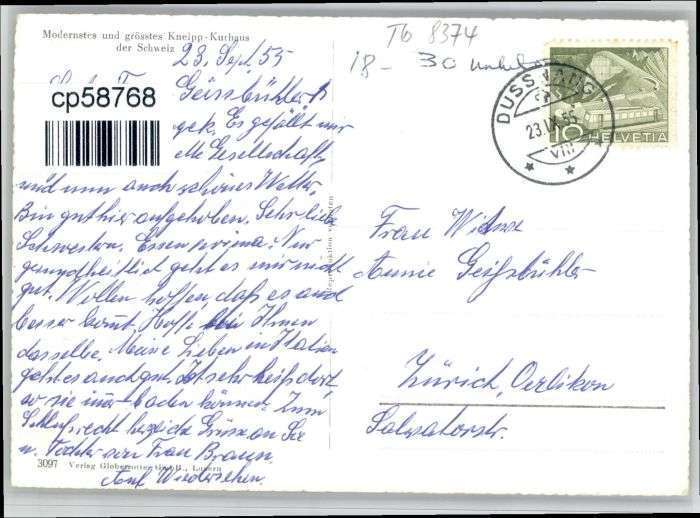 Modernstes und grösstes Kneipp-Kurhaus
der Schweiz
23. Sept. 55
Tb 8374
18 - 30
cp58768
Geissbühler
Es gefällt mir
Gesellschaft,
und nun auch schönes Wetter.
Bin gut hier aufgehoben. Sehr liebe
Schwestern. Essen prima. Nur
gesundheitlich geht es mir nicht
gut. Wollen hoffen, daß es auch
besser komt. Hoffe bei Ihnen
dasselbe. Meine Lieben in Italien
geht es auch gut. Ist sehr heiß dort,
wo sie im̅er baden können. Zum
Schluß recht herzliche Grüsse an Sie
u. Tochter von Frau Braun.
Auf Wiedersehen.
3097 Verlag Globetrotter G.m.b.H., Luzern
DUSSNANG
23.IX.55
VIII
10 HELVETIA
Frau Witwe
Annie Geißbühler
Zürich, Oerlikon
Salvatorstr.